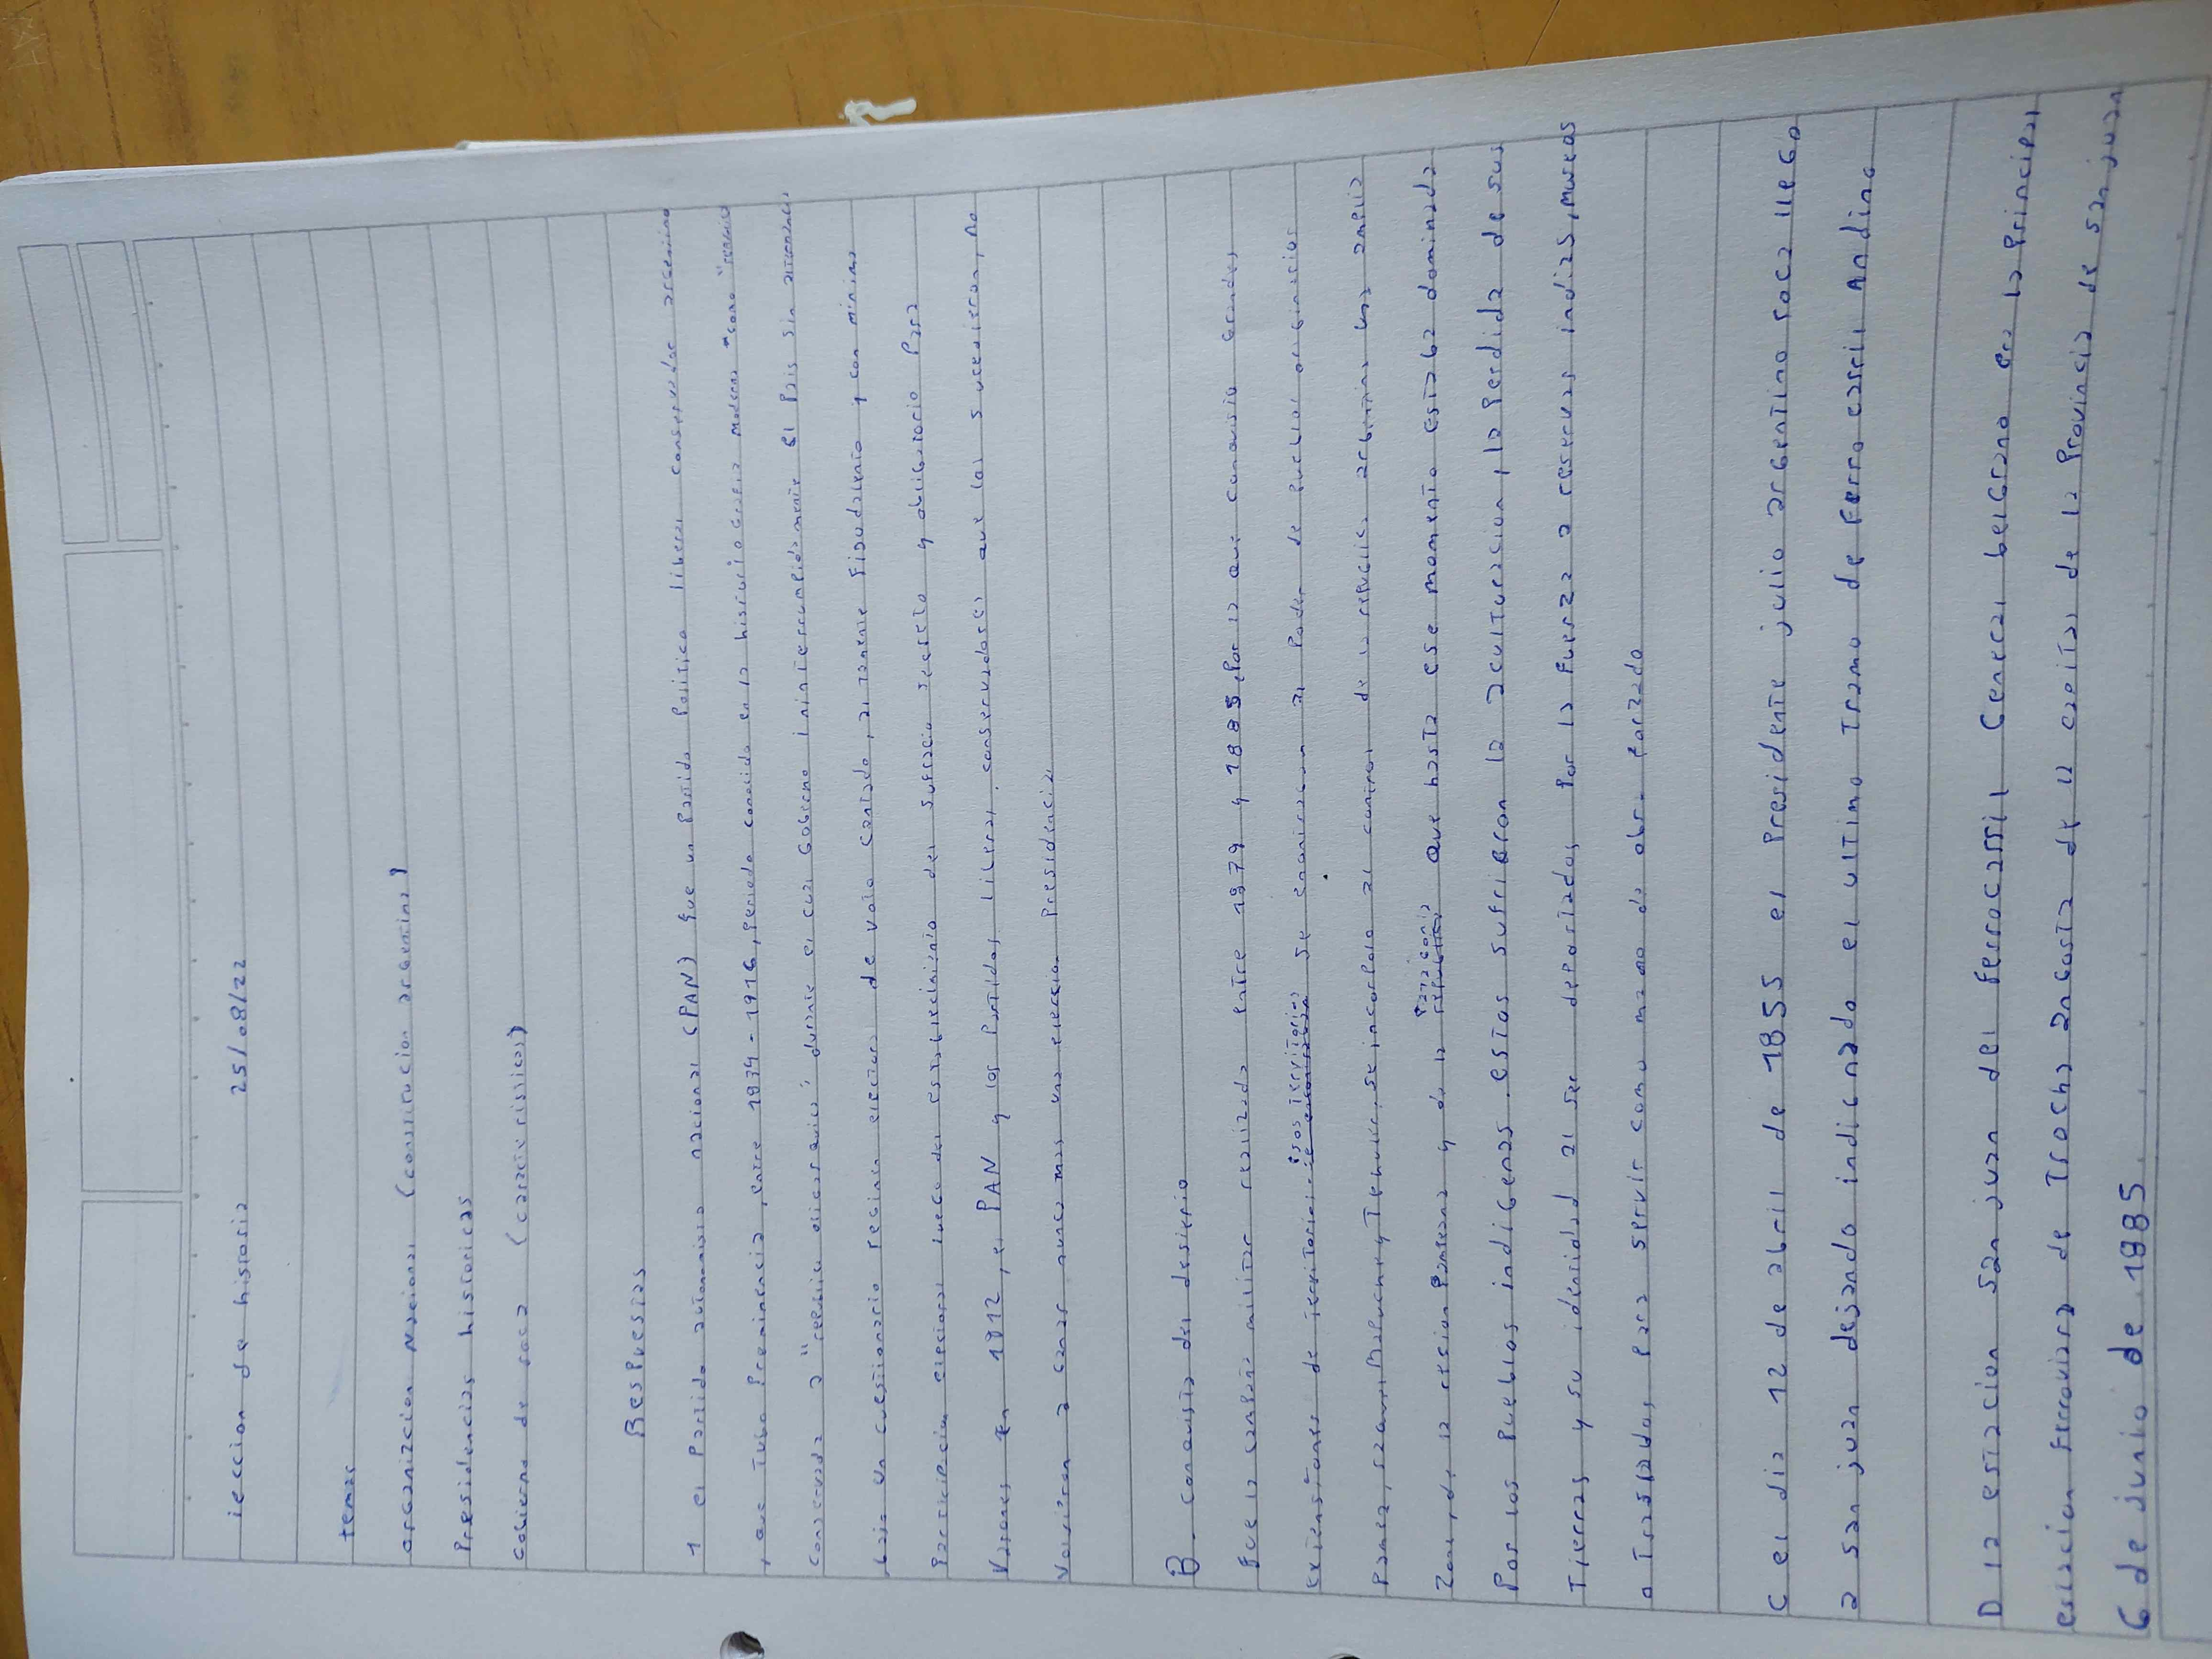 leccion de historia 25/08/22
temas
organizacion Nacional (constitucion argentina)
Presidencias historicas
Gobierno de roca (caracteristicas)
Respuestas
1 el Partido autonomista nacional (PAN) fue un Partido Politico liberal conservador argentino
, que Tubo Preminencia, entre 1874-1916, periodo conocido en la historiografia moderna "como "republica
conservada a "republica oligarquica", durante el cual Goberno ininterrumpidamente el Pais sin alternancia
bajo un cuestionario regimen electoral de voto cantado, altamente fraudulento y con minima
Participacion electoral luego del establecimiento del sufragio secreto y obligatorio Para
Varones en 1912, el PAN y los Partidos liberal conservadores que los sucedieron, no
Volvieron a Ganar nunca mas una eleccion Presidencial
B. conquista del desierto
fue la campaña militar realizada entre 1879 y 1885, Por la que conquisto Grandes
extensiones de territorio esos territorios se encontraban al Poder de Pueblos originarios
Pampa, ranquel, Mapuche y Tehuelche, se incorporo al control de la republica argentina una amplia
Zona, de la region Pampeana y de la Patagonia que hasta ese momento estaba dominada
Por los Pueblos indigenas. estos sufrieron la aculturacion, la Perdida de sus
Tierras y su identidad al ser deportados, Por la fuerza a reservas indias, museos
o Trasladados para servir como mano de obra forzado
C el dia 12 de abril de 1855 el Presidente julio argentino roca llego
a san juan dejando indignado el ultimo Tramo de ferro carril Andino
D la estacion san juan del ferrocarril General belGrano era la Principal
estacion ferroviara de Trocha angosta de la capital de la Provincia de san juan
6 de junio de 1885